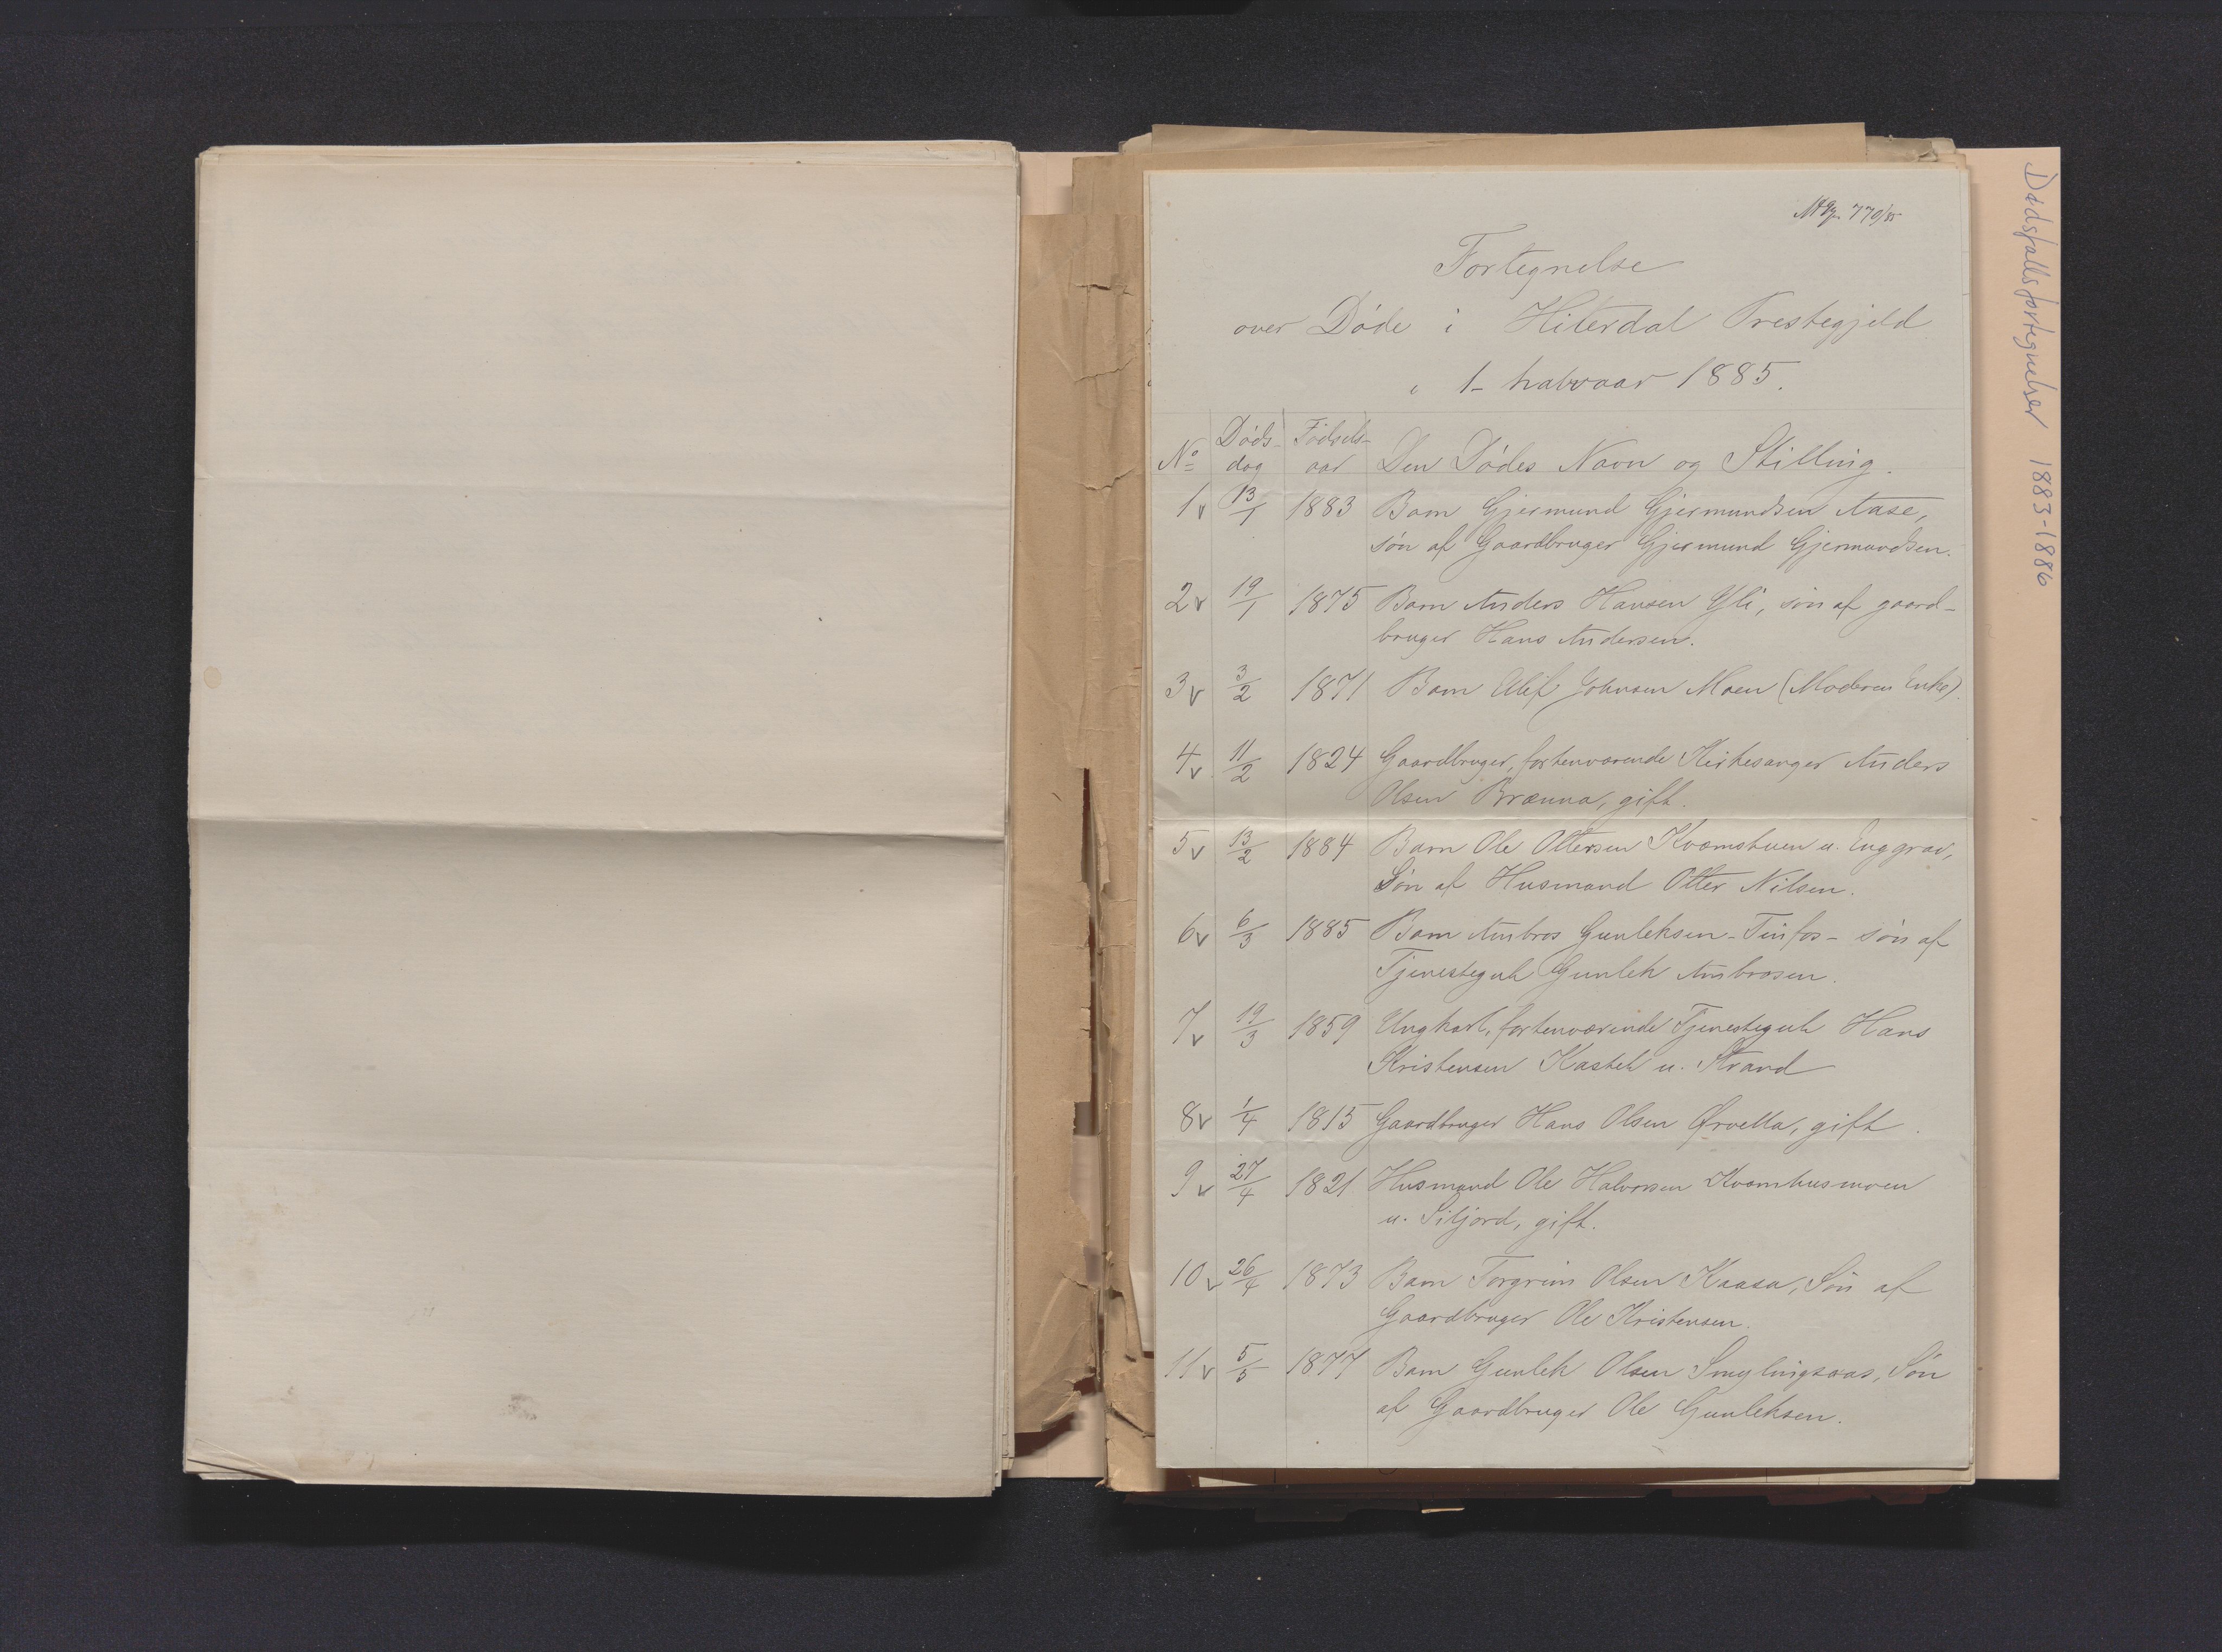 770/85
Fortegnelse
over Døde i Hiterdal Prestegjeld
i 1_ halvaar 1885.
No Døds- dag Fødsels- aar Den Dødes Navn og Stilling.
1 v 13/1 1883 Barn Gjermund Gjermundsen Aase,
søn af Gaardbruger Gjermund Gjermundsen.
2 v 19/1 1875 Barn Anders Hansen Yli, søn af gaard-
bruger Hans Andersen.
3 v 3/2 1871 Barn Olef Johnsen Moen (Moderen Enke).
4 v 11/2 1824 Gaardbruger, forhenværende Kirkesanger Anders
Olsen Brænna, gift.
5 v 13/2 1884 Barn Ole Ottersen Kvæmstuen u. Enggrav,
Søn af Husmand Otter Nilsen.
6 v 6/3 1885 Barn Ambros Gunleksen - Tinfos - søn af
Tjenestegut Gunlek Ambrosen.
7 v 19/3 1859 Ungkarl, forhenværende Tjenestegut Hans
Kristensen Kasteh u. Strand
8 v 1/4 1815 Gaardbruger Hans Olsen Ørvella, gift.
9 v 27/4 1821 Husmand Ole Halvorsen Kvernhusmoen
u. Siljord, gift.
10 v 26/4 1873 Barn Torgrim Olsen Kaasa, Søn af
Gaardbruger Ole Kristensen.
11 v 5/5 1877 Barn Gunlek Olsen Smylingsaas, Søn
af Gaardbruger Ole Gunleksen.
Dødsfallsfortegnelser 1883-1886